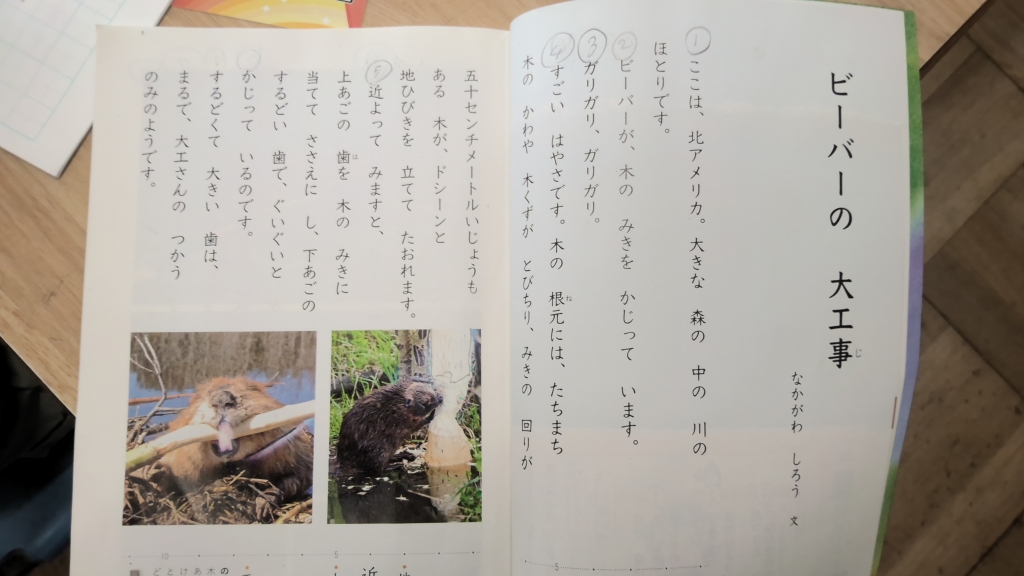 ビーバーの 大工事
じ
なかがわ しろう 文
①ここは、北アメリカ。大きな 森の 中の 川の
ほとりです。
②ビーバーが、木の みきを かじって います。
③ガリガリ、ガリガリ。
④すごい はやさです。木の 根元には、たちまち
ね
木の かわや 木くずが とびちり、みきの 回りが
5
五十センチメートルいじょうも
ある 木が、ドシーンと
地ひびきを 立てて たおれます。
近よって みますと、
上あごの 歯を 木の みきに
は
当てて ささえに し、下あごの
するどい 歯で、ぐいぐいと
かじって いるのです。
するどくて 大きい 歯は、
まるで、大工さんの つかう
のみのようです。
5
10
地
近